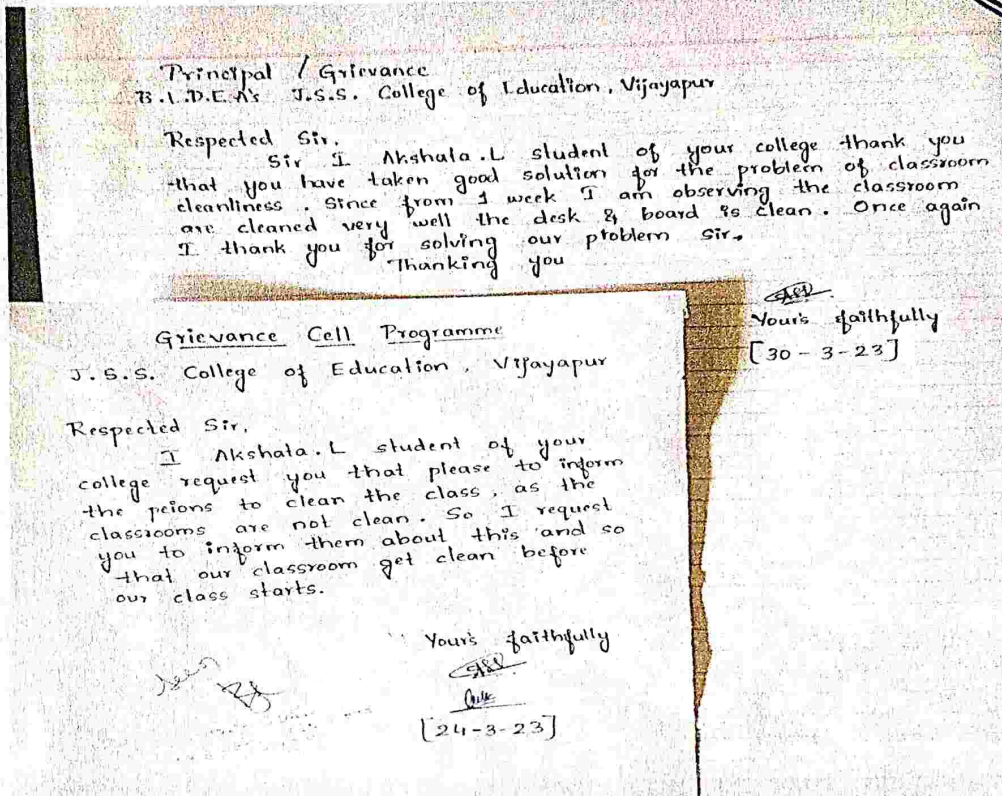 Principal / Grievance
B.L.D.E.A's J.S.S. College of Education, Vijayapur
Respected Sir,
Sir I Akshata.L student of your college thank you
that you have taken good solution for the problem of classroom
cleanliness. Since from 1 week I am observing the classroom
are cleaned very well the desk & board is clean. Once again
I thank you for solving our problem Sir.
Thanking you
Your's faithfully
[30-3-23]
Grievance Cell Programme
J.S.S. College of Education, Vijayapur
Respected Sir,
I Akshata.L student of your
college request you that please to inform
the peions to clean the class, as the
classrooms are not clean. So I request
you to inform them about this and so
that our classroom get clean before
our class starts.
Your's faithfully
[24-3-23]